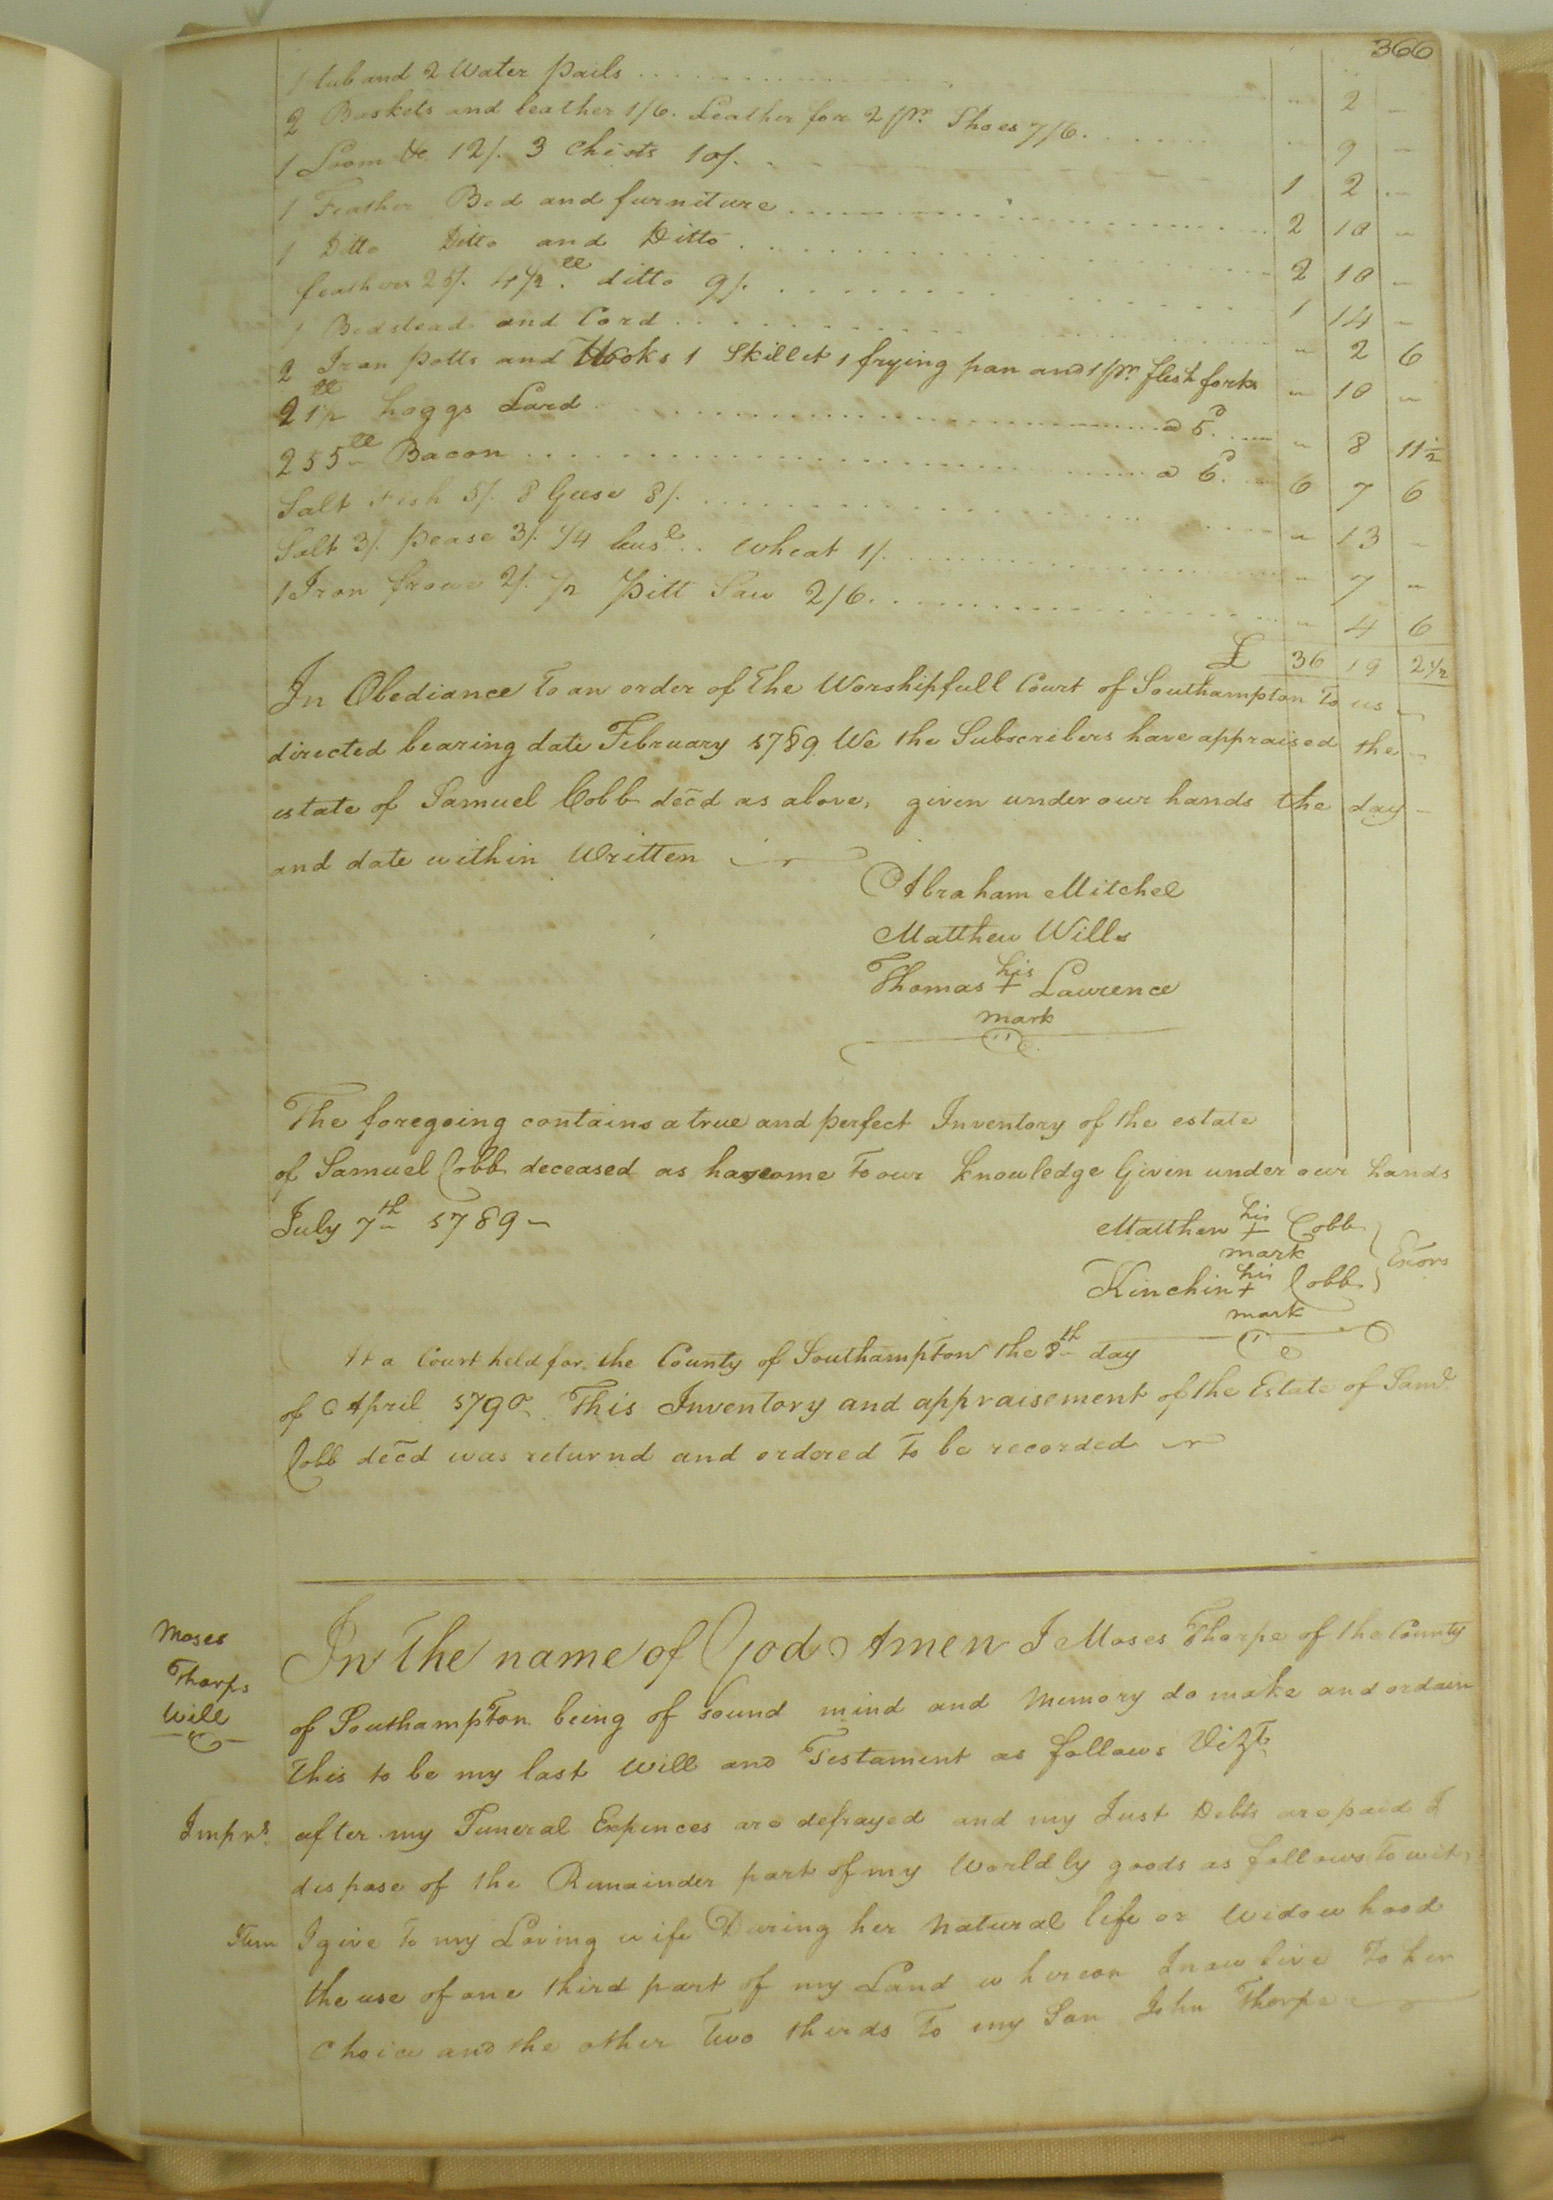 366
1 tub and 2 Water pails " 2 "
2 Baskets and leather 1/6. Leather for 2 pr. Shoes 7/6. " 9 "
1 Loom &c 12/. 3 Chists 10/. 1 2 "
1 Feather Bed and furniture 2 10 "
1 Ditto Ditto and Ditto 2 10 "
feathers 25/. 4½ ll. ditto 9/. 1 14 "
1 Bedstead and Cord " 2 6
2 Iron potts and Hooks 1 Skillet 1 frying pan and 1 pr. flesh forks " 10 "
21½ ll hoggs Lard a 5d. " 8 11½
255 ll Bacon a 6d. 6 7 6
Salt Fish 5/. 8 Geese 8/. " 13 "
Salt 3/. pease 3/. 1/4 busl.. Wheat 1/. " 7 "
1 Iron frowe 2/. ½ Pitt Saw 2/6. " 4 6
£ 36 19 2½
In Obediance to an order of the Worshipfull Court of Southampton to us
directed bearing date February 1789. We the Subscribers have appraised the
estate of Samuel Cobb decd as above, given under our hands the day
and date within Written
Abraham Mitchel
Matthew Wills
Thomas his + Lawrence
mark
The foregoing contains a true and perfect Inventory of the estate
of Samuel Cobb deceased as has come to our knowledge Given under our hands
July 7th 1789
Matthew his + Cobb
mark
Kinchin his + Cobb } Exors
mark
At a Court held for the County of Southampton the 8th day
of April 1790. This Inventory and appraisement of the Estate of Saml
Cobb decd was returnd and ordered to be recorded
Moses
Thorps
Will
In the name of God Amen I Moses Thorpe of the County
of Southampton being of sound mind and Memory do make and ordain
this to be my last Will and Testament as follows Vizt.
Imprs. after my Funeral Expences are defrayed and my Just Debts are paid I
dispose of the Remainder part of my Worldly goods as follows to wit,
Item I give to my Loving wife During her natural life or widowhood
the use of one third part of my Land whereon I now live to her
Choice and the other two thirds to my Son John Thorpe